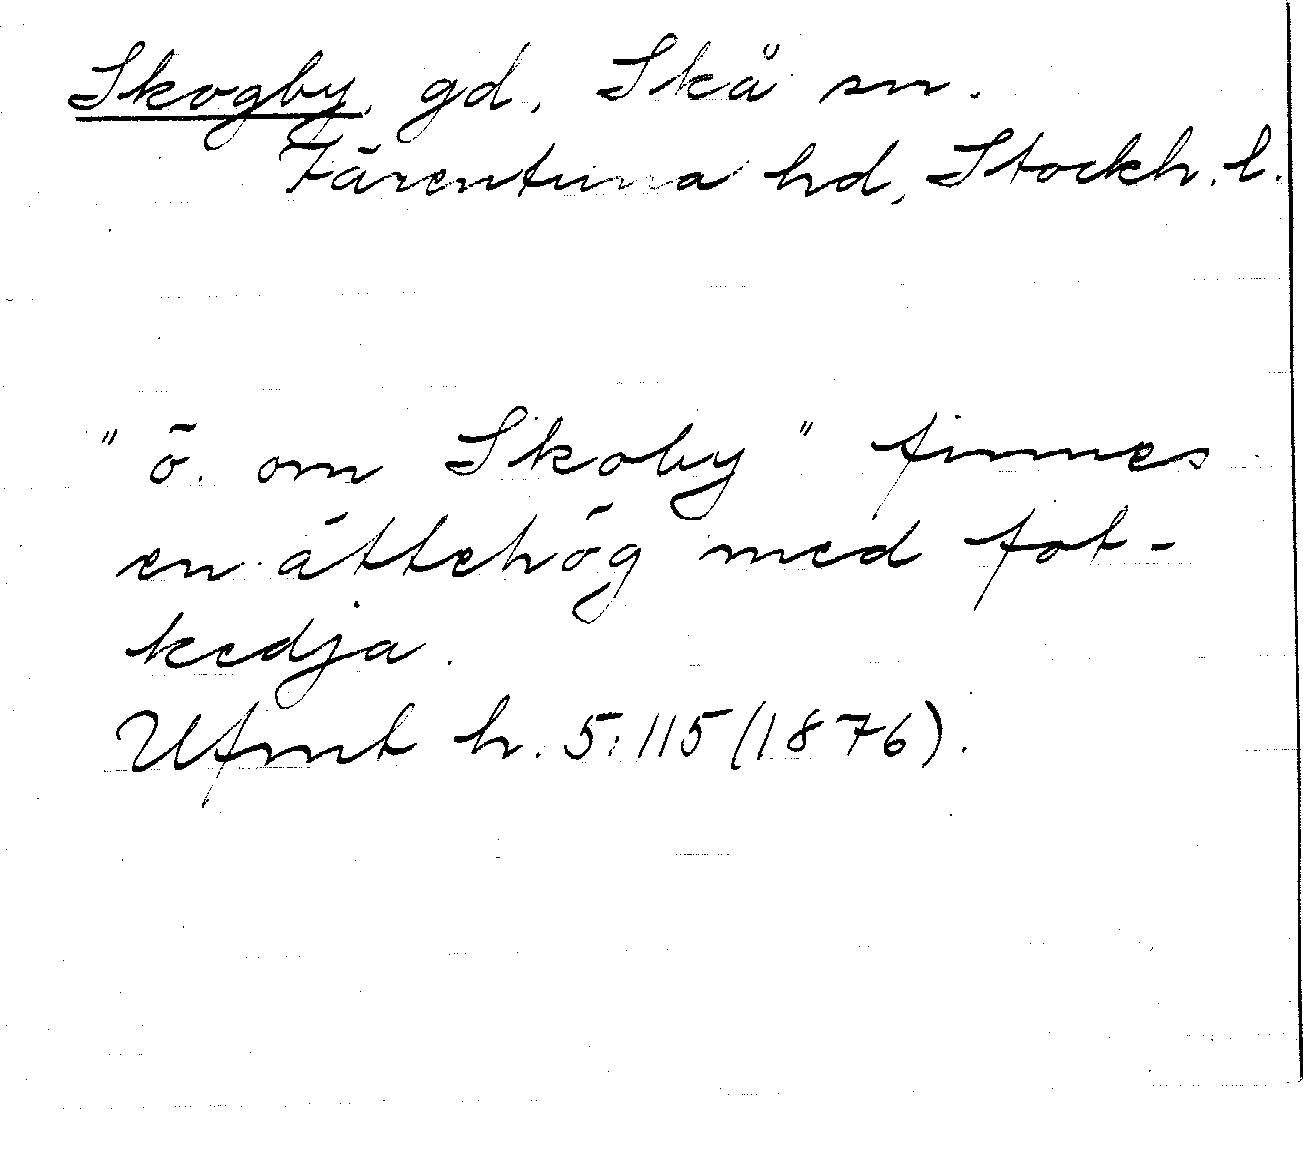 Skogby, gd, Skå sn.
Färentuna hd, Stockh. l.
"ö. om Skoby" finnes
en ättehög med fot-
kedja.
Ufmt h. 5:115 (1876).